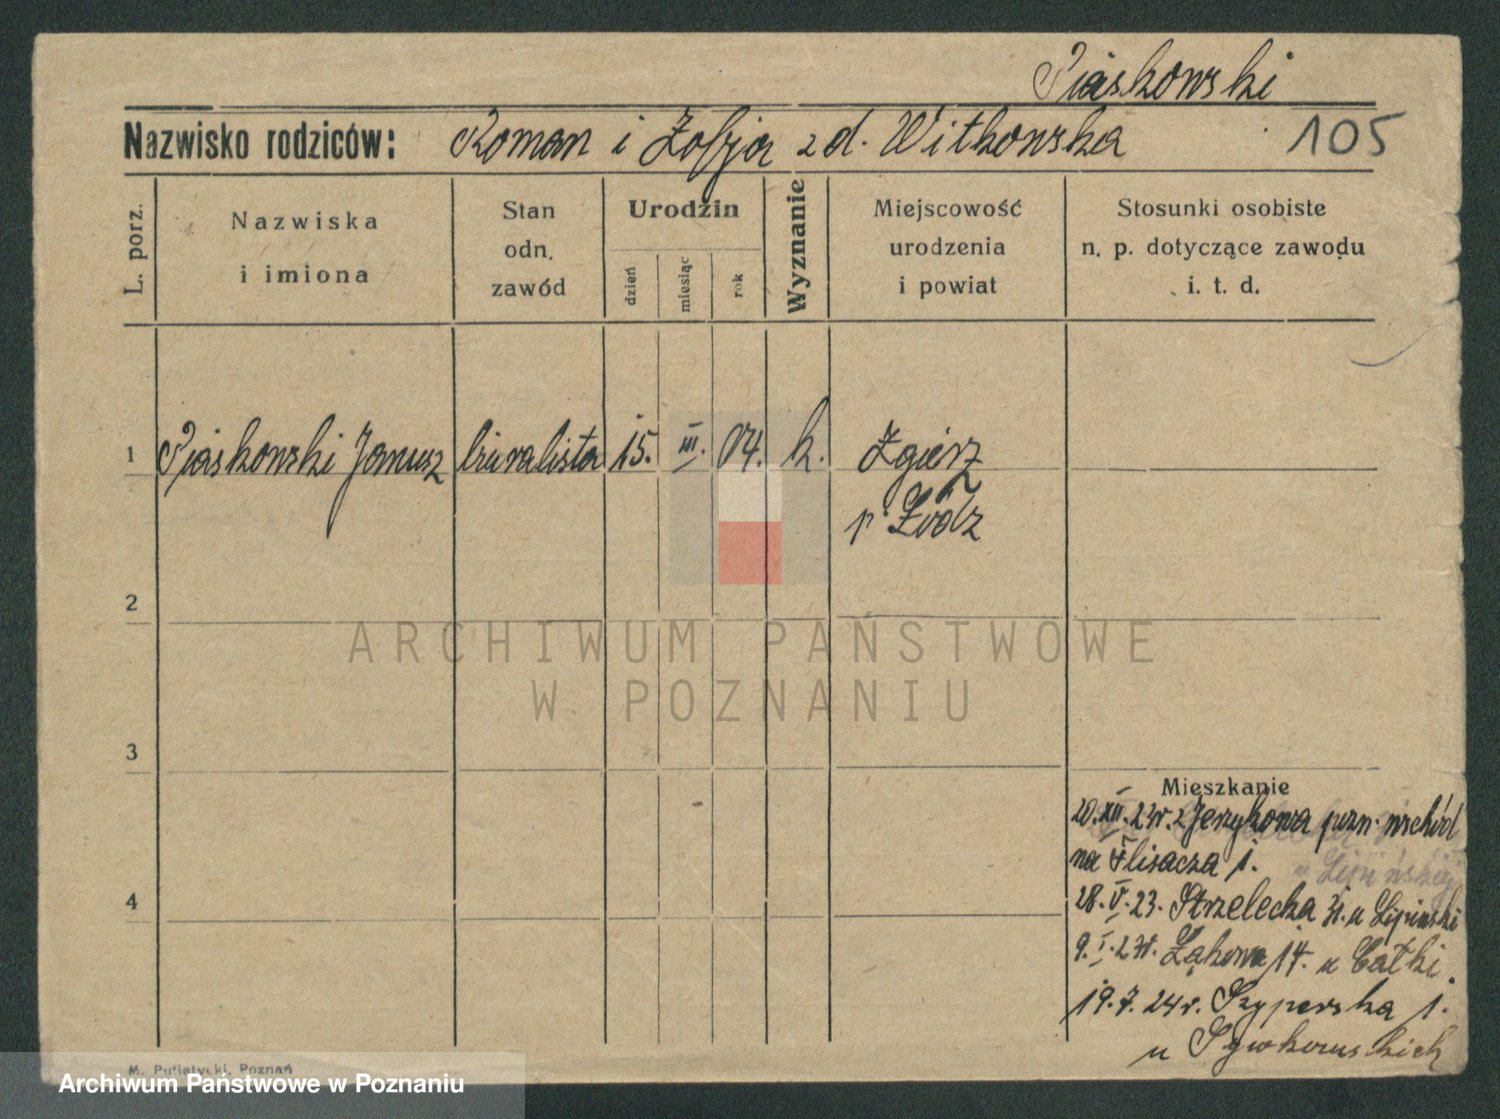 Piaskowski
Nazwisko rodziców: Roman i Zofja z d. Witkowska 105
L. porz.
Nazwiska
i imiona
Stan
odn.
zawód
Urodzin
dzień
miesiąc
rok
Wyznanie
Miejscowość
urodzenia
i powiat
Stosunki osobiste
n. p. dotyczące zawodu
i. t. d.
1 Piaskowski Janusz biuralista 15. III. 04. k. Zgierz
p. Łódz
2
ARCHIWUM PAŃSTWOWE
W POZNANIU
3
Mieszkanie
20. XII. 23r. z Jerzykowa pozn. wschód
na Flisacza 1.
u Lipińskiej
4
28. V. 23. Strzelecka 31. u Lipinski
9. I. 24. Łąkowa 14. u
19. 7. 24r. Szyperska 1.
u
M. Putiatycki, Poznań
Archiwum Państwowe w Poznaniu